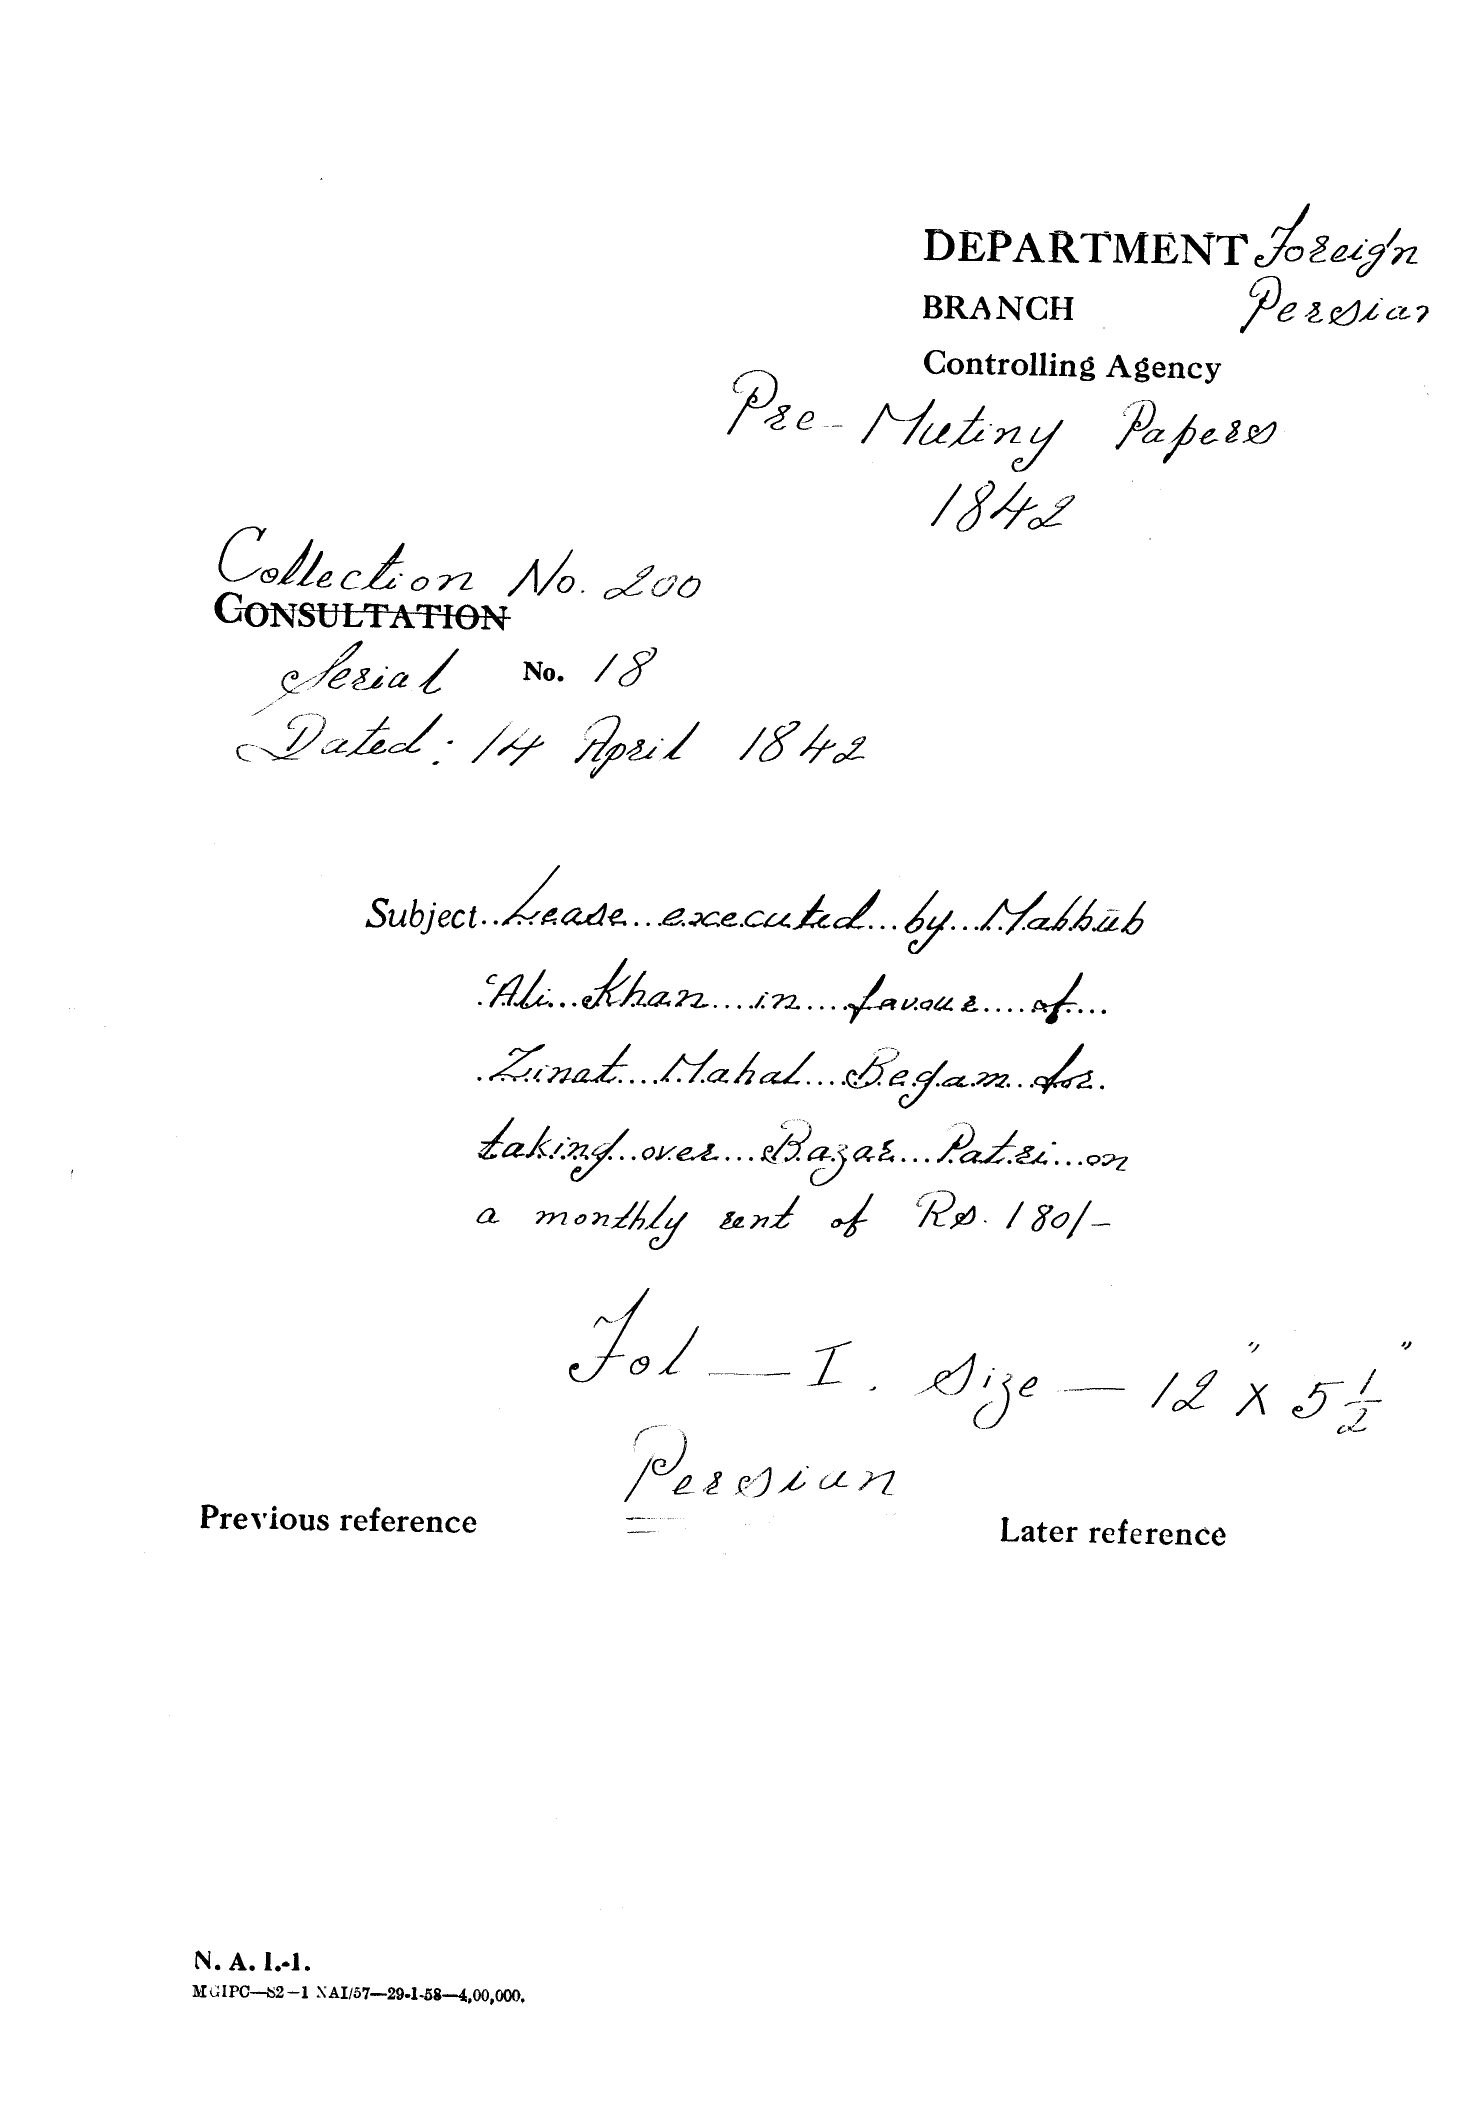 DEPARTMENT Foreign
BRANCH Persian
Controlling Agency
Pre-Mutiny Papers
1842
Collection No. 200
CONSULTATION
Serial No. 18
Dated: 14 April 1842
Subject..Lease...executed...by...Mahbūb
‘Ali...Khan....in....favour....of....
Zinat....Mahal....Begam..for.
taking..over...Bazar...Patri...on
a monthly rent of Rs. 180/-
Fol — I. Size — 12" X 5 1/2"
Persian
Previous reference
Later reference
N. A. I.-1.
MGIPC—S2—1 NAI/57—29-1-58—4,00,000.